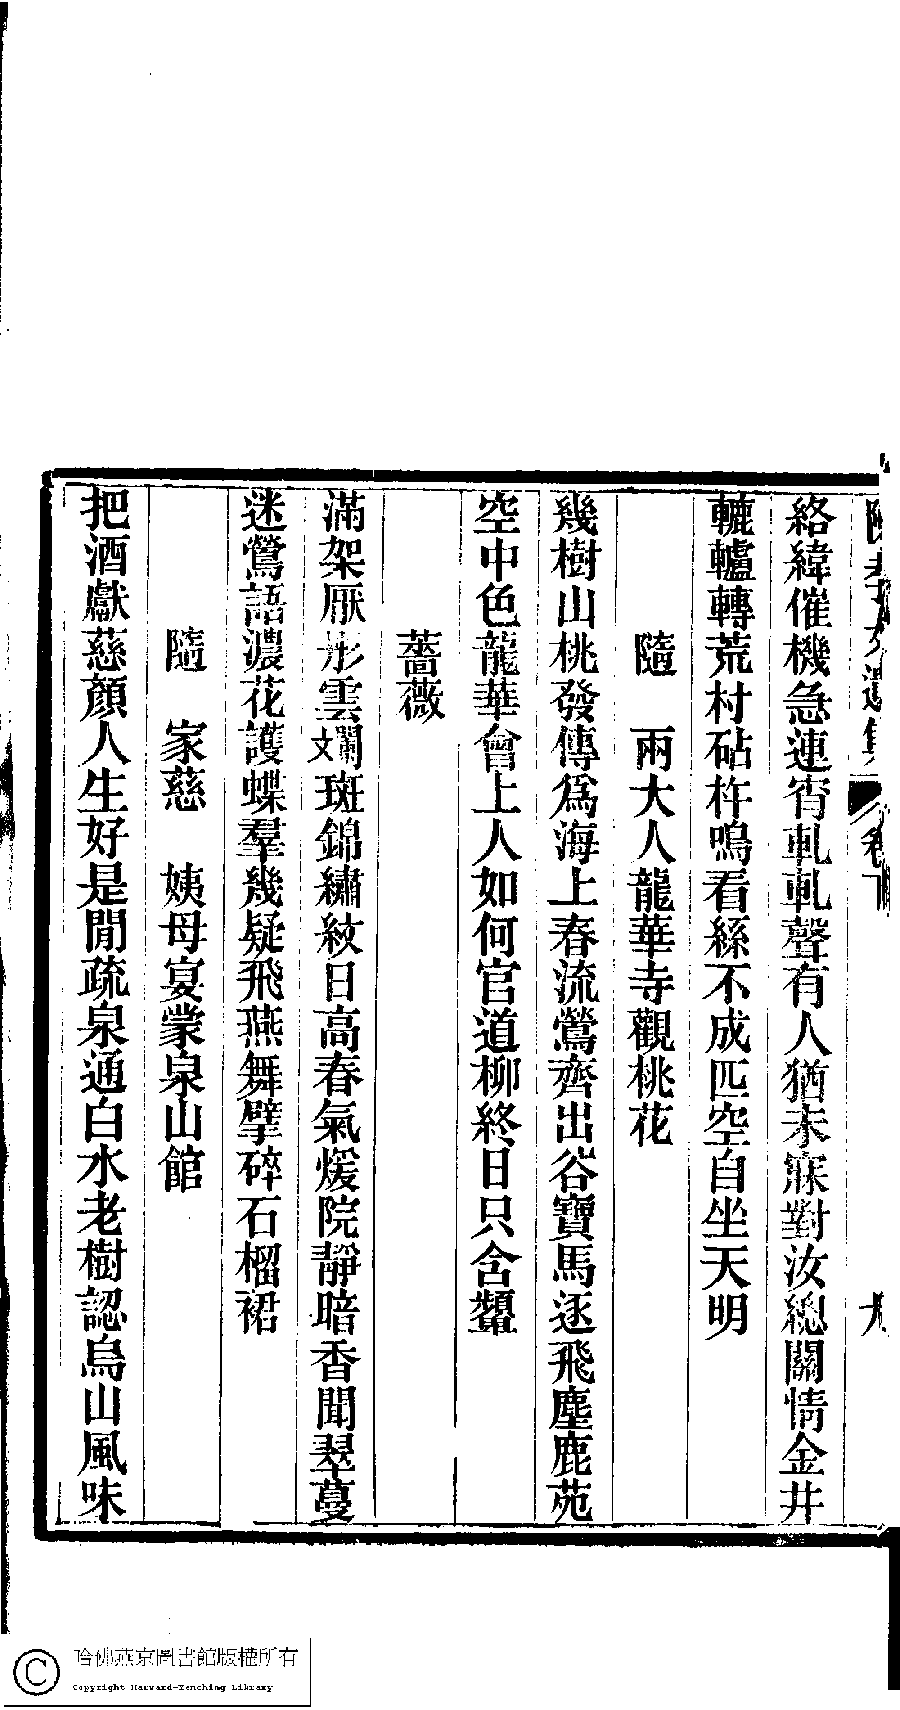 絡緯催機急連宵軋軋聲有人猶未寐對汝總關情金井
轆轤轉荒村砧杵鳴看絲不成匹空自坐天明
隨　兩大人龍華寺觀桃花
幾樹山桃發傳爲海上春流鶯齊出谷寶馬逐飛塵鹿苑
空中色龍華會上人如何官道柳終日只含顰
薔薇
滿架厭彤雲斕斑錦繡紋日高春氣煖院靜暗香聞翠蔓
迷鶯語濃花護蝶羣幾疑飛燕舞擘碎石榴裙
隨　家慈　姨母宴蒙泉山館
把酒獻慈顏人生好是閒疏泉通白水老樹認烏山風味
哈佛燕京圖書館版權所有
Copyright Harvard-Yenching Library